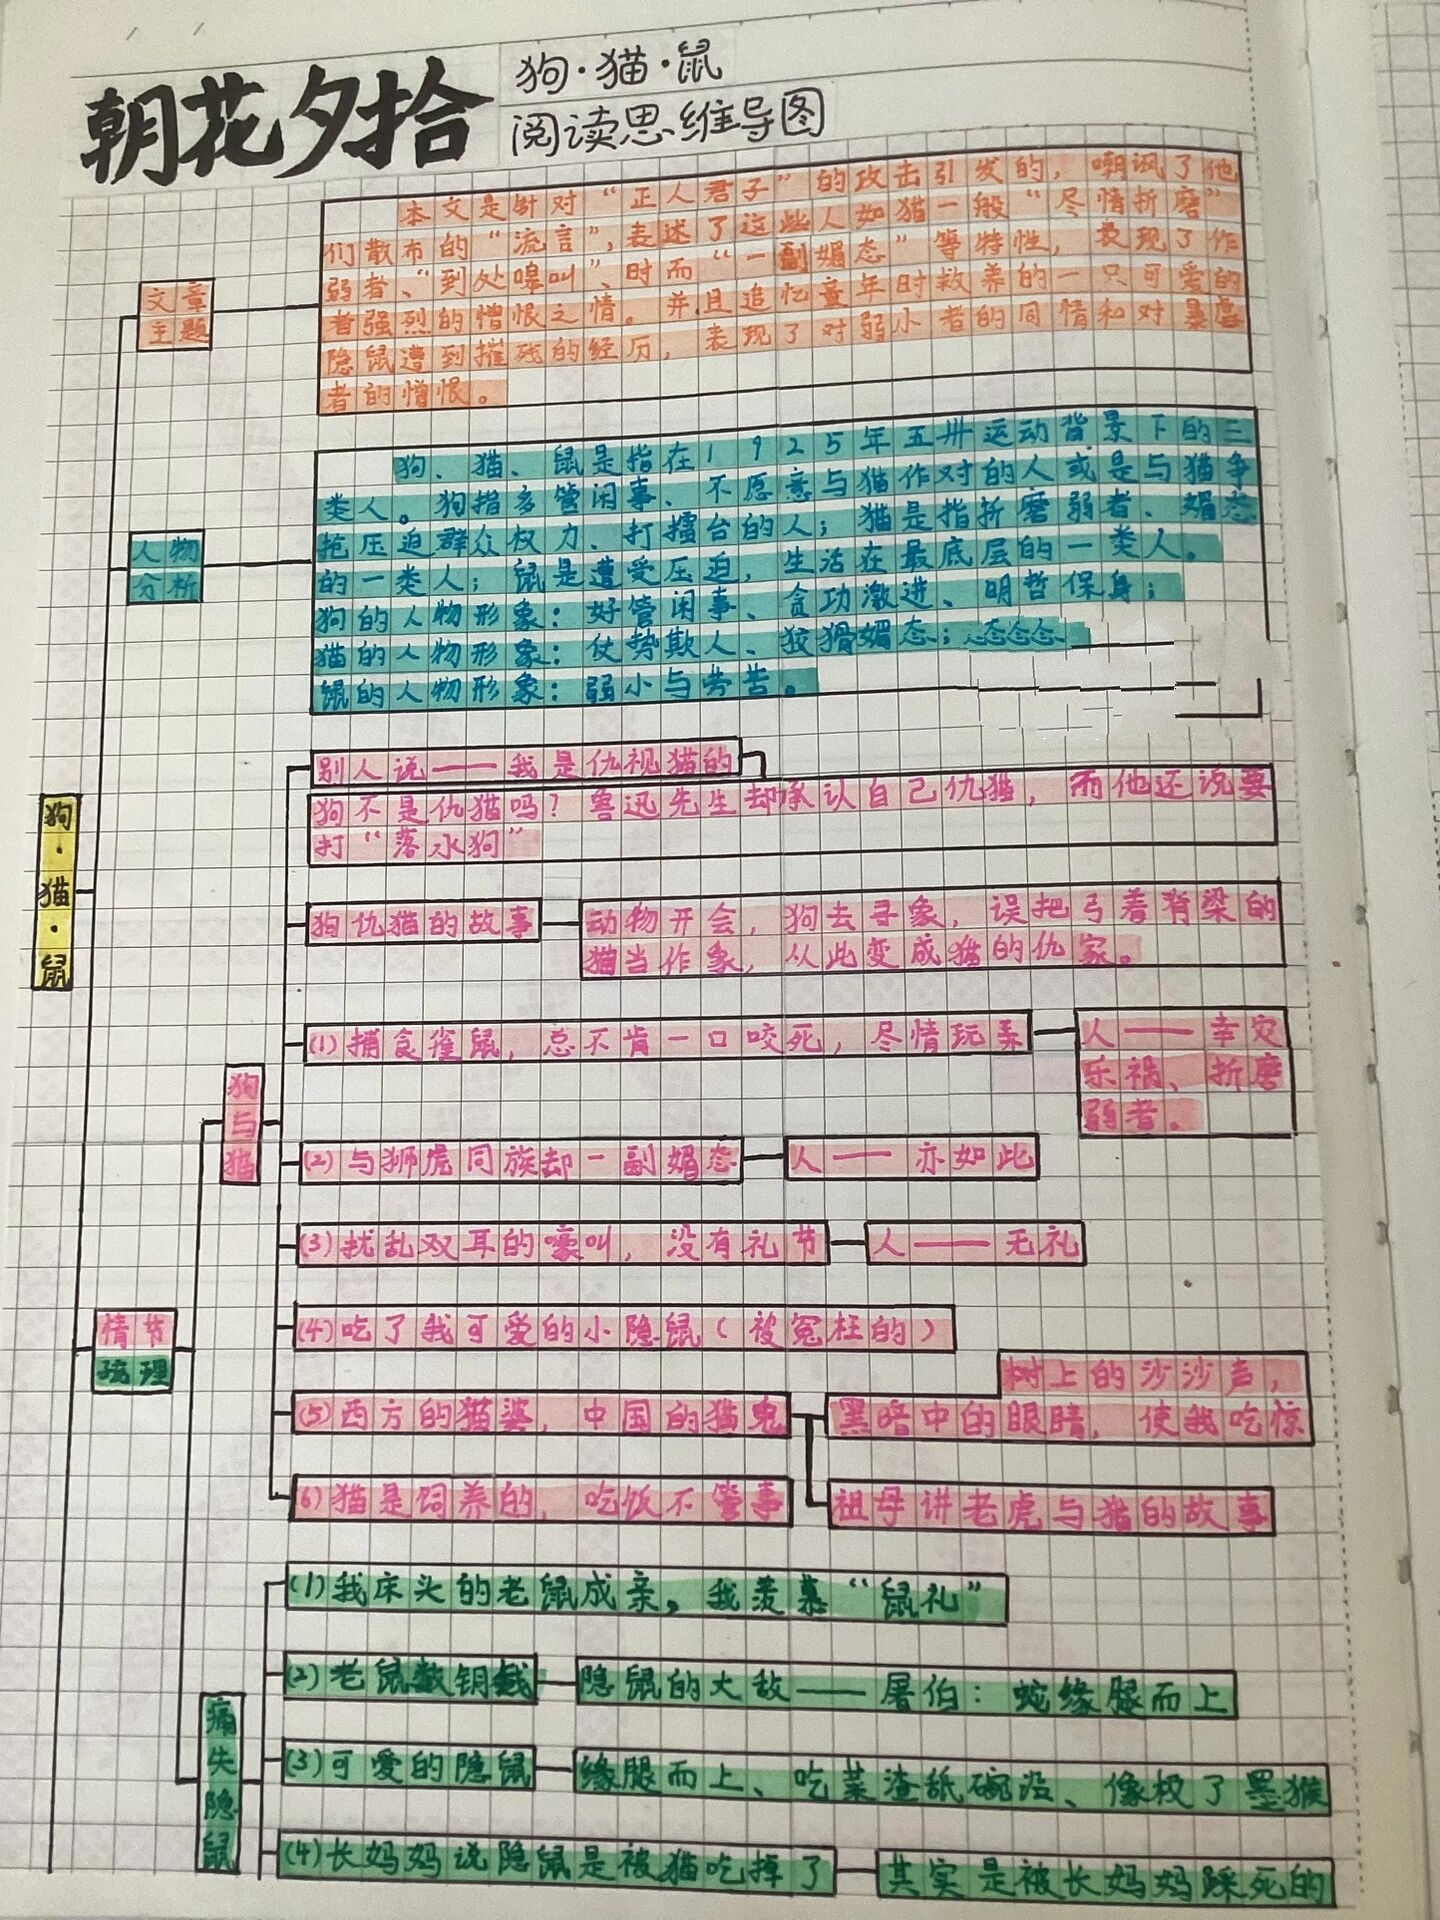 朝花夕拾
狗·猫·鼠
阅读思维导图
文章
主题
本文是针对“正人君子”的攻击引发的，嘲讽了他
们散布的“流言”，表述了这些人如猫一般“尽情折磨”
弱者、“到处嗥叫”、时而“一副媚态”等特性，表现了作
者强烈的憎恨之情。并且追忆童年时救养的一只可爱的
隐鼠遭到摧残的经历，表现了对弱小者的同情和对暴虐
者的憎恨。
人物
分析
狗、猫、鼠是指在1925年五卅运动背景下的三
类人。狗指多管闲事、不愿意与猫作对的人或是与猫争
抢压迫群众权力、打擂台的人；猫是指折磨弱者、媚态
的一类人；鼠是遭受压迫，生活在最底层的一类人。
狗的人物形象：好管闲事、贪功激进、明哲保身；
猫的人物形象：仗势欺人、狡猾媚态；
鼠的人物形象：弱小与劳苦。
狗·猫·鼠
情节
梳理
狗与猫
别人说——我是仇视猫的
狗不是仇猫吗？鲁迅先生却承认自己仇猫，而他还说要
打“落水狗”
狗仇猫的故事
动物开会，狗去寻象，误把弓着脊梁的
猫当作象，从此变成猫的仇家。
(1)捕食雀鼠，总不肯一口咬死，尽情玩弄
人——幸灾
乐祸、折磨
弱者。
(2)与狮虎同族却一副媚态
人——亦如此
(3)扰乱双耳的嚎叫，没有礼节
人——无礼
(4)吃了我可爱的小隐鼠（被冤枉的）
(5)西方的猫婆，中国的猫鬼
树上的沙沙声，
黑暗中的眼睛，使我吃惊
(6)猫是饲养的，吃饭不管事
祖母讲老虎与猫的故事
痛失隐鼠
(1)我床头的老鼠成亲，我羡慕“鼠礼”
(2)老鼠数钥钱
隐鼠的大敌——屠伯：蛇缘腿而上
(3)可爱的隐鼠
缘腿而上、吃菜渣舐碗沿、像极了墨猴
(4)长妈妈说隐鼠是被猫吃掉了
其实是被长妈妈踩死的